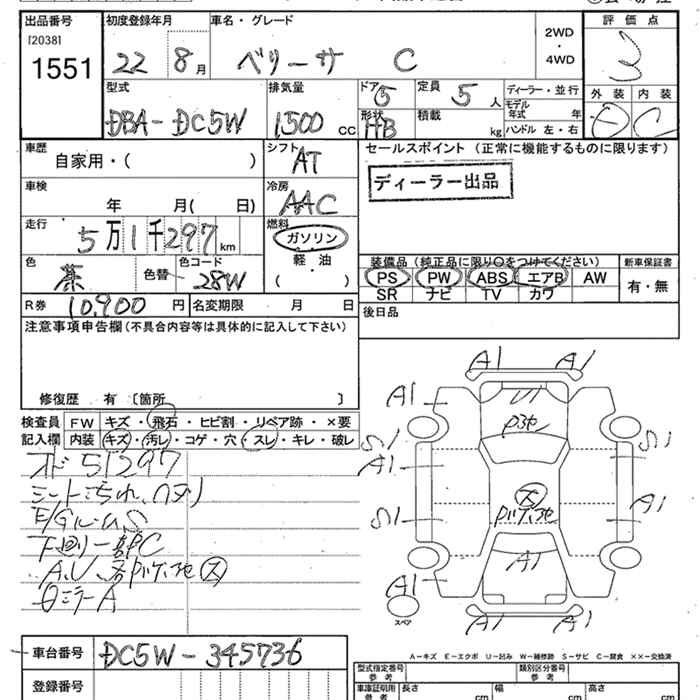 出品番号 初度登録年月 車名・グレード 2WD・4WD 評価点
[2038]
1551 22 8月 ベリーサ C 3
型式 排気量 ドア 定員 ディーラー・並行 外装 内装
DBA-DC5W 1500 CC 5 5人 モデル年式 年 D C
形状 積載 ハンドル 左・右
HB kg
車歴 シフト セールスポイント (正常に機能するものに限ります)
自家用・( ) AT
ディーラー出品
車検 冷房
年 月( 日) AAC
走行 燃料
5万1千297km ガソリン
軽油
( )
色 色替 色コード
茶 28W
装備品 (純正品に限り○をつけてください) 新車保証書
PS PW ABS エアB AW 有・無
SR ナビ TV カワ
R券 10,900円 名変期限 月 日 後日品
注意事項申告欄 (不具合内容等は具体的に記入して下さい)
修復歴 有 〔箇所 〕
検査員 FW キズ・飛石・ヒビ割・リペア跡・×要
記入欄 内装 キズ・汚レ・コゲ・穴・スレ・キレ・破レ
オド51297
シートこちれ、ヘタリ
E/GルームS
下廻り一部C
A.U.
ミラーA
A1 A1
A1
S1 S1
A1
S1 A1
A1
A1
A1 A1
スペア
A-キズ E-エクボ U-凹み W-補修跡 S-サビ C-腐食 ××-交換済
車台番号 DC5W-345736
登録番号
型式指定番号 参考 類別区分番号 参考
車庫証明用 参考 長さ cm 幅 cm 高さ cm